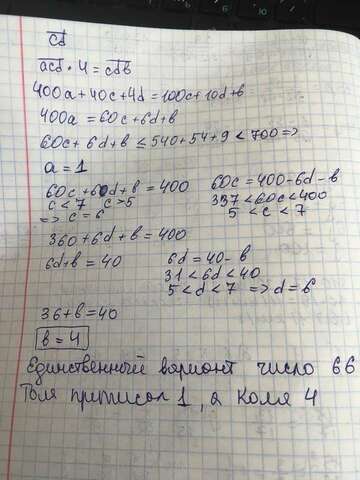 cd
acd · 4 = cdb
400a + 40c + 4d = 100c + 10d + b
400a = 60c + 6d + b
60c + 6d + b ≤ 540 + 54 + 9 < 700 =>
a = 1
60c + 6d + b = 400
c < 7 c > 5
=> c = 6
60c = 400 - 6d - b
337 < 60c < 400
5 < c < 7
360 + 6d + b = 400
6d + b = 40
6d = 40 - b
31 < 6d < 40
5 < d < 7 => d = 6
36 + b = 40
b = 4
Единственный вариант число 66
Толя приписал 1, а Коля 4